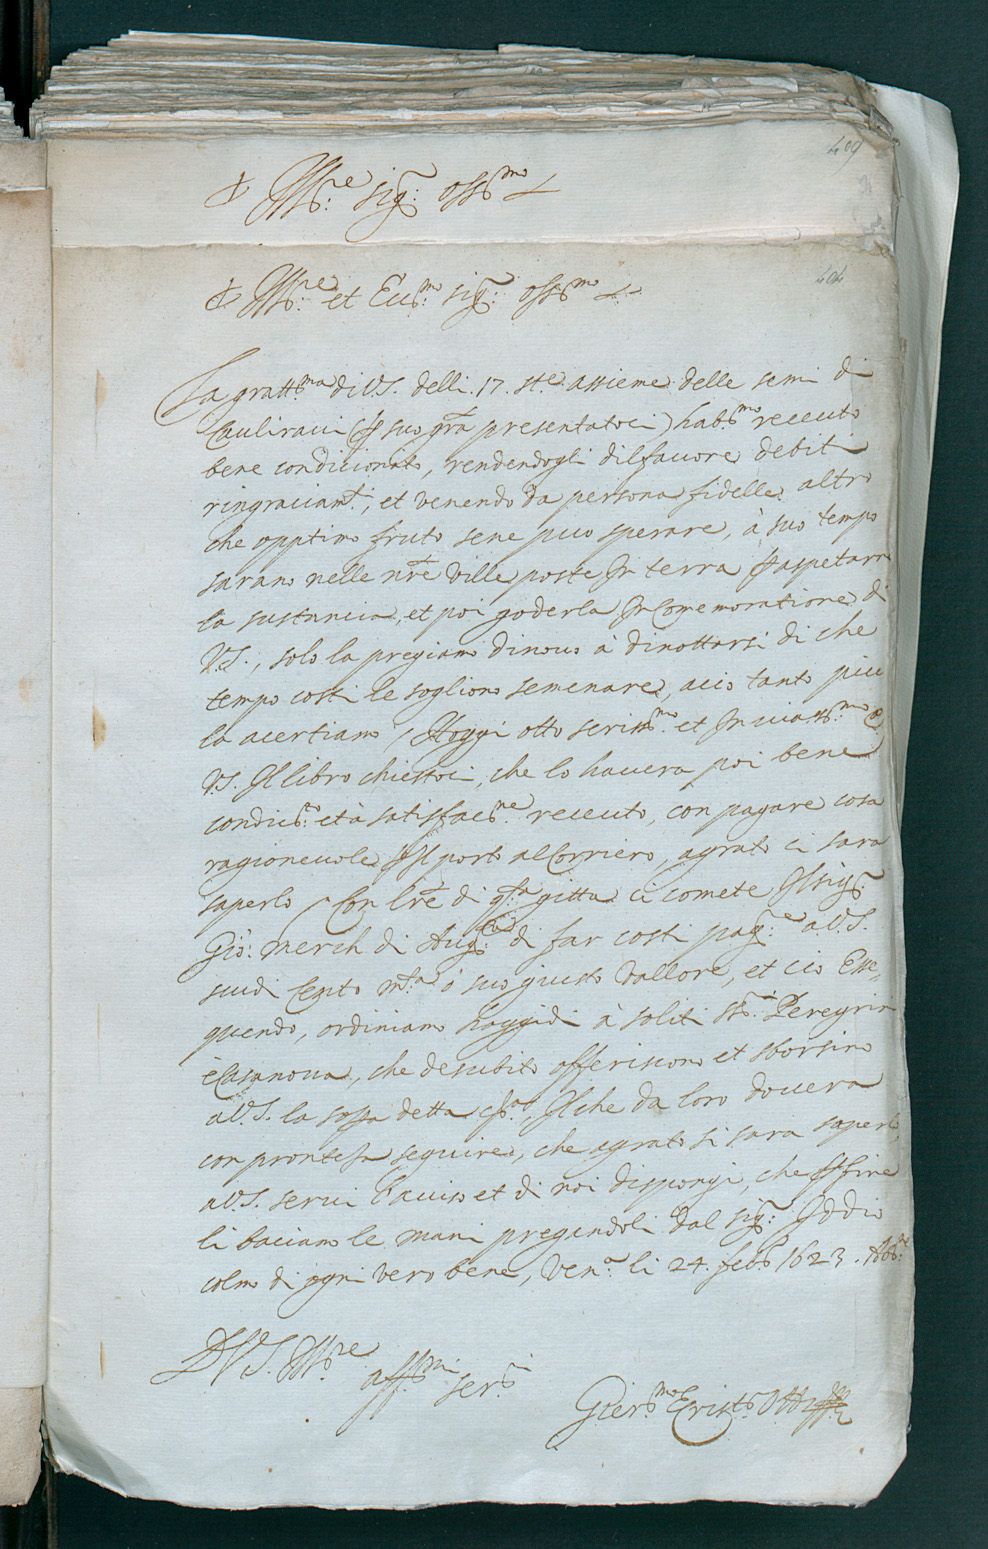 409
Ill.re sig.r oss.mo
404
Ill.re et Ecc.mo sig.r oss.mo
La gratt.ma di V.S. delli .17. st.e assieme delle semi di
Cauliravi (p suo gra presentatoci) hab.mo receuto
bene condicionato, rendendogli dil favore debiti
ringraciam.ti, et venendo da persona fidelle altro
che opptimo fruto sene puo sperare, à suo tempo
sarano nelle nre Ville poste In terra p aspetarne
la sustancia, et poi goderla In Comemoratione di
V.S., solo la pregiamo dinovo à dinottarsi di che
tempo costi le sogliono semenare, acio tanto piu
la acertiamo / Hoggi otto scriss.mo et Inviass.mo a
V.S. Il libro chiestoci, che lo havera poi bene
condic.to et à satisfac.ne receuto, con pagare cosa
ragionevole p Il porto al Corriero, agrato ci sara
saperlo / Con lre di q.ta gitta ci comete Il sig.r
Gio: Merch di Aug.ta di far costi pag.re a V.S.
scudi Cento m.ta ò suo giusto vallore, et cio Esse=
quendo, ordiniamo hoggidi à soliti ss.ri Peregrini
è Casanova, che desubito offeriscono et sborsino
a V.S. la sossa detta, Il che da loro dovera
con prontessa seguire, che agrato si sara saperlo,
a V.S. servi l'aviso et di noi disponghi, che p fine
li baciamo le mani pregandoli dal sig.r Iddio
colmo di ogni vero bene, Ven.a li 24. feb.o 1623.
D V.S. Ill.re
aff.mi ser.ri
Gier.mo Crist.o Ott